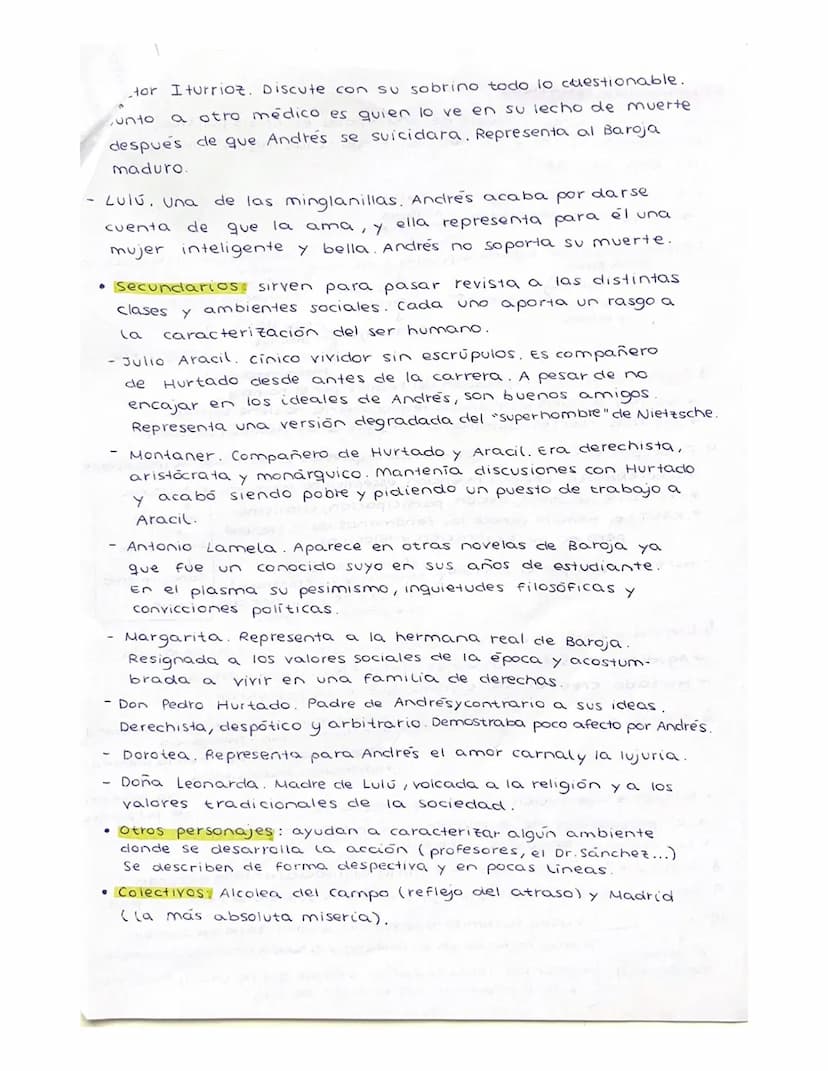 Iturrioz. Discute con su sobrino todo lo cuestionable.
a otro médico es quien lo ve en su lecho de muerte
después de que Andrés se suicidara. Representa al Baroja
maduro.
- Lulú. Una de las minglanillas. Andrés acaba por darse
cuenta de que la ama, y ella representa para él una
mujer inteligente y bella. Andrés no soporta su muerte.
• Secundarios: sirven para pasar revista a las distintas
clases y ambientes sociales. Cada uno aporta un rasgo a
la caracterización del ser humano.
- Julio Aracil. Cínico vividor sin escrúpulos. Es compañero
de Hurtado desde antes de la carrera. A pesar de no
encajar en los ideales de Andrés, son buenos amigos.
Representa una versión degradada del "superhombre" de Nietzsche.
- Montaner. Compañero de Hurtado y Aracil. Era derechista,
aristócrata y monárquico. Mantenía discusiones con Hurtado
y acabó siendo pobre y pidiendo un puesto de trabajo a
Aracil.
- Antonio Lamela. Aparece en otras novelas de Baroja ya
que fue un conocido suyo en sus años de estudiante.
En el plasma su pesimismo, inquietudes filosóficas y
convicciones políticas.
- Margarita. Representa a la hermana real de Baroja.
Resignada a los valores sociales de la época y acostum-
brada a vivir en una familia de derechas.
- Don Pedro Hurtado. Padre de Andrés y contrario a sus ideas.
Derechista, despótico y arbitrario. Demostraba poco afecto por Andrés.
- Dorotea. Representa para Andrés el amor carnal y la lujuria.
- Doña Leonarda. Madre de Lulú, volcada a la religión y a los
valores tradicionales de la sociedad.
• Otros personajes: ayudan a caracterizar algún ambiente
donde se desarrolla la acción (profesores, el Dr. Sánchez...)
Se describen de forma despectiva y en pocas líneas.
• Colectivos: Alcolea del Campo (reflejo del atraso) y Madrid
(la más absoluta miseria).